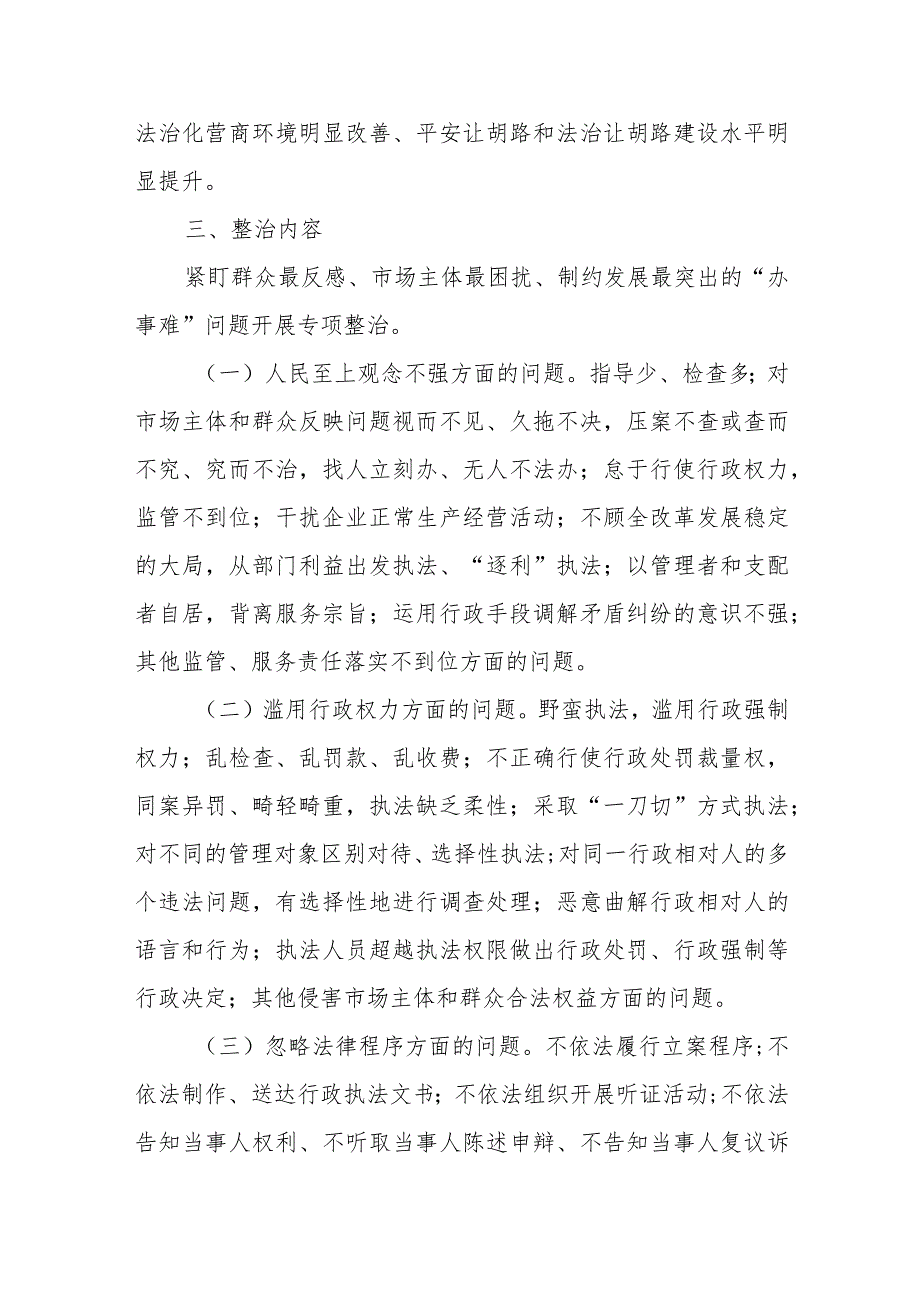 法治化营商环境明显改善、平安让胡路和法治让胡路建设水平明
显提升。
三、整治内容
紧盯群众最反感、市场主体最困扰、制约发展最突出的“办
事难”问题开展专项整治。
（一）人民至上观念不强方面的问题。指导少、检查多；对
市场主体和群众反映问题视而不见、久拖不决，压案不查或查而
不究、究而不治，找人立刻办、无人不法办；怠于行使行政权力，
监管不到位；干扰企业正常生产经营活动；不顾全改革发展稳定
的大局，从部门利益出发执法、“逐利”执法；以管理者和支配
者自居，背离服务宗旨；运用行政手段调解矛盾纠纷的意识不强；
其他监管、服务责任落实不到位方面的问题。
（二）滥用行政权力方面的问题。野蛮执法，滥用行政强制
权力；乱检查、乱罚款、乱收费；不正确行使行政处罚裁量权，
同案异罚、畸轻畸重，执法缺乏柔性；采取“一刀切”方式执法；
对不同的管理对象区别对待、选择性执法;对同一行政相对人的多
个违法问题，有选择性地进行调查处理；恶意曲解行政相对人的
语言和行为；执法人员超越执法权限做出行政处罚、行政强制等
行政决定；其他侵害市场主体和群众合法权益方面的问题。
（三）忽略法律程序方面的问题。不依法履行立案程序;不
依法制作、送达行政执法文书；不依法组织开展听证活动;不依法
告知当事人权利、不听取当事人陈述申辩、不告知当事人复议诉